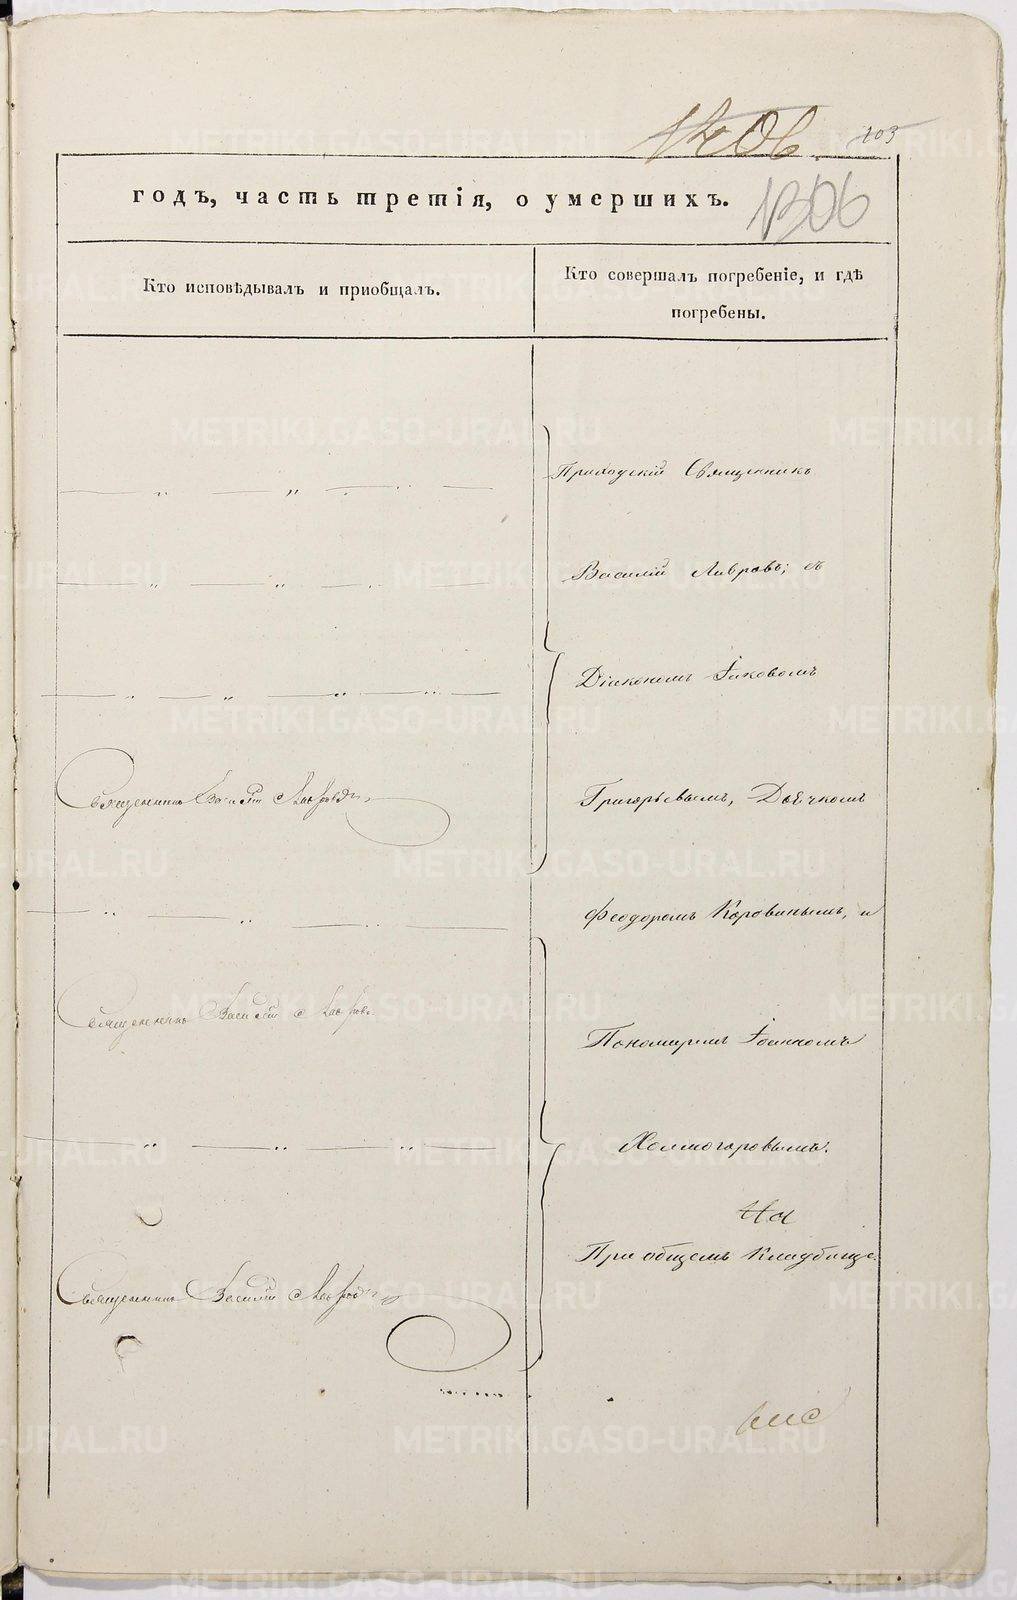 1206. 103
годъ, часть третія, о умершихъ. 1306
Кто исповѣдывалъ и приобщалъ.
Кто совершалъ погребеніе, и гдѣ
погребены.
Приходскій Священникъ
Василій Лавровъ; съ
Діякономъ Іаковомъ
Священникъ Василій Лавровъ
Григорьевымъ, Дьячкомъ
Феодоромъ Коровинымъ, и
Священникъ Василій Лавровъ
Пономаремъ Іоанномъ
Холмогоровымъ.
На
При общемъ Кладбище.
Священникъ Василій Лавровъ
METRIKI.GASO-URAL.RU